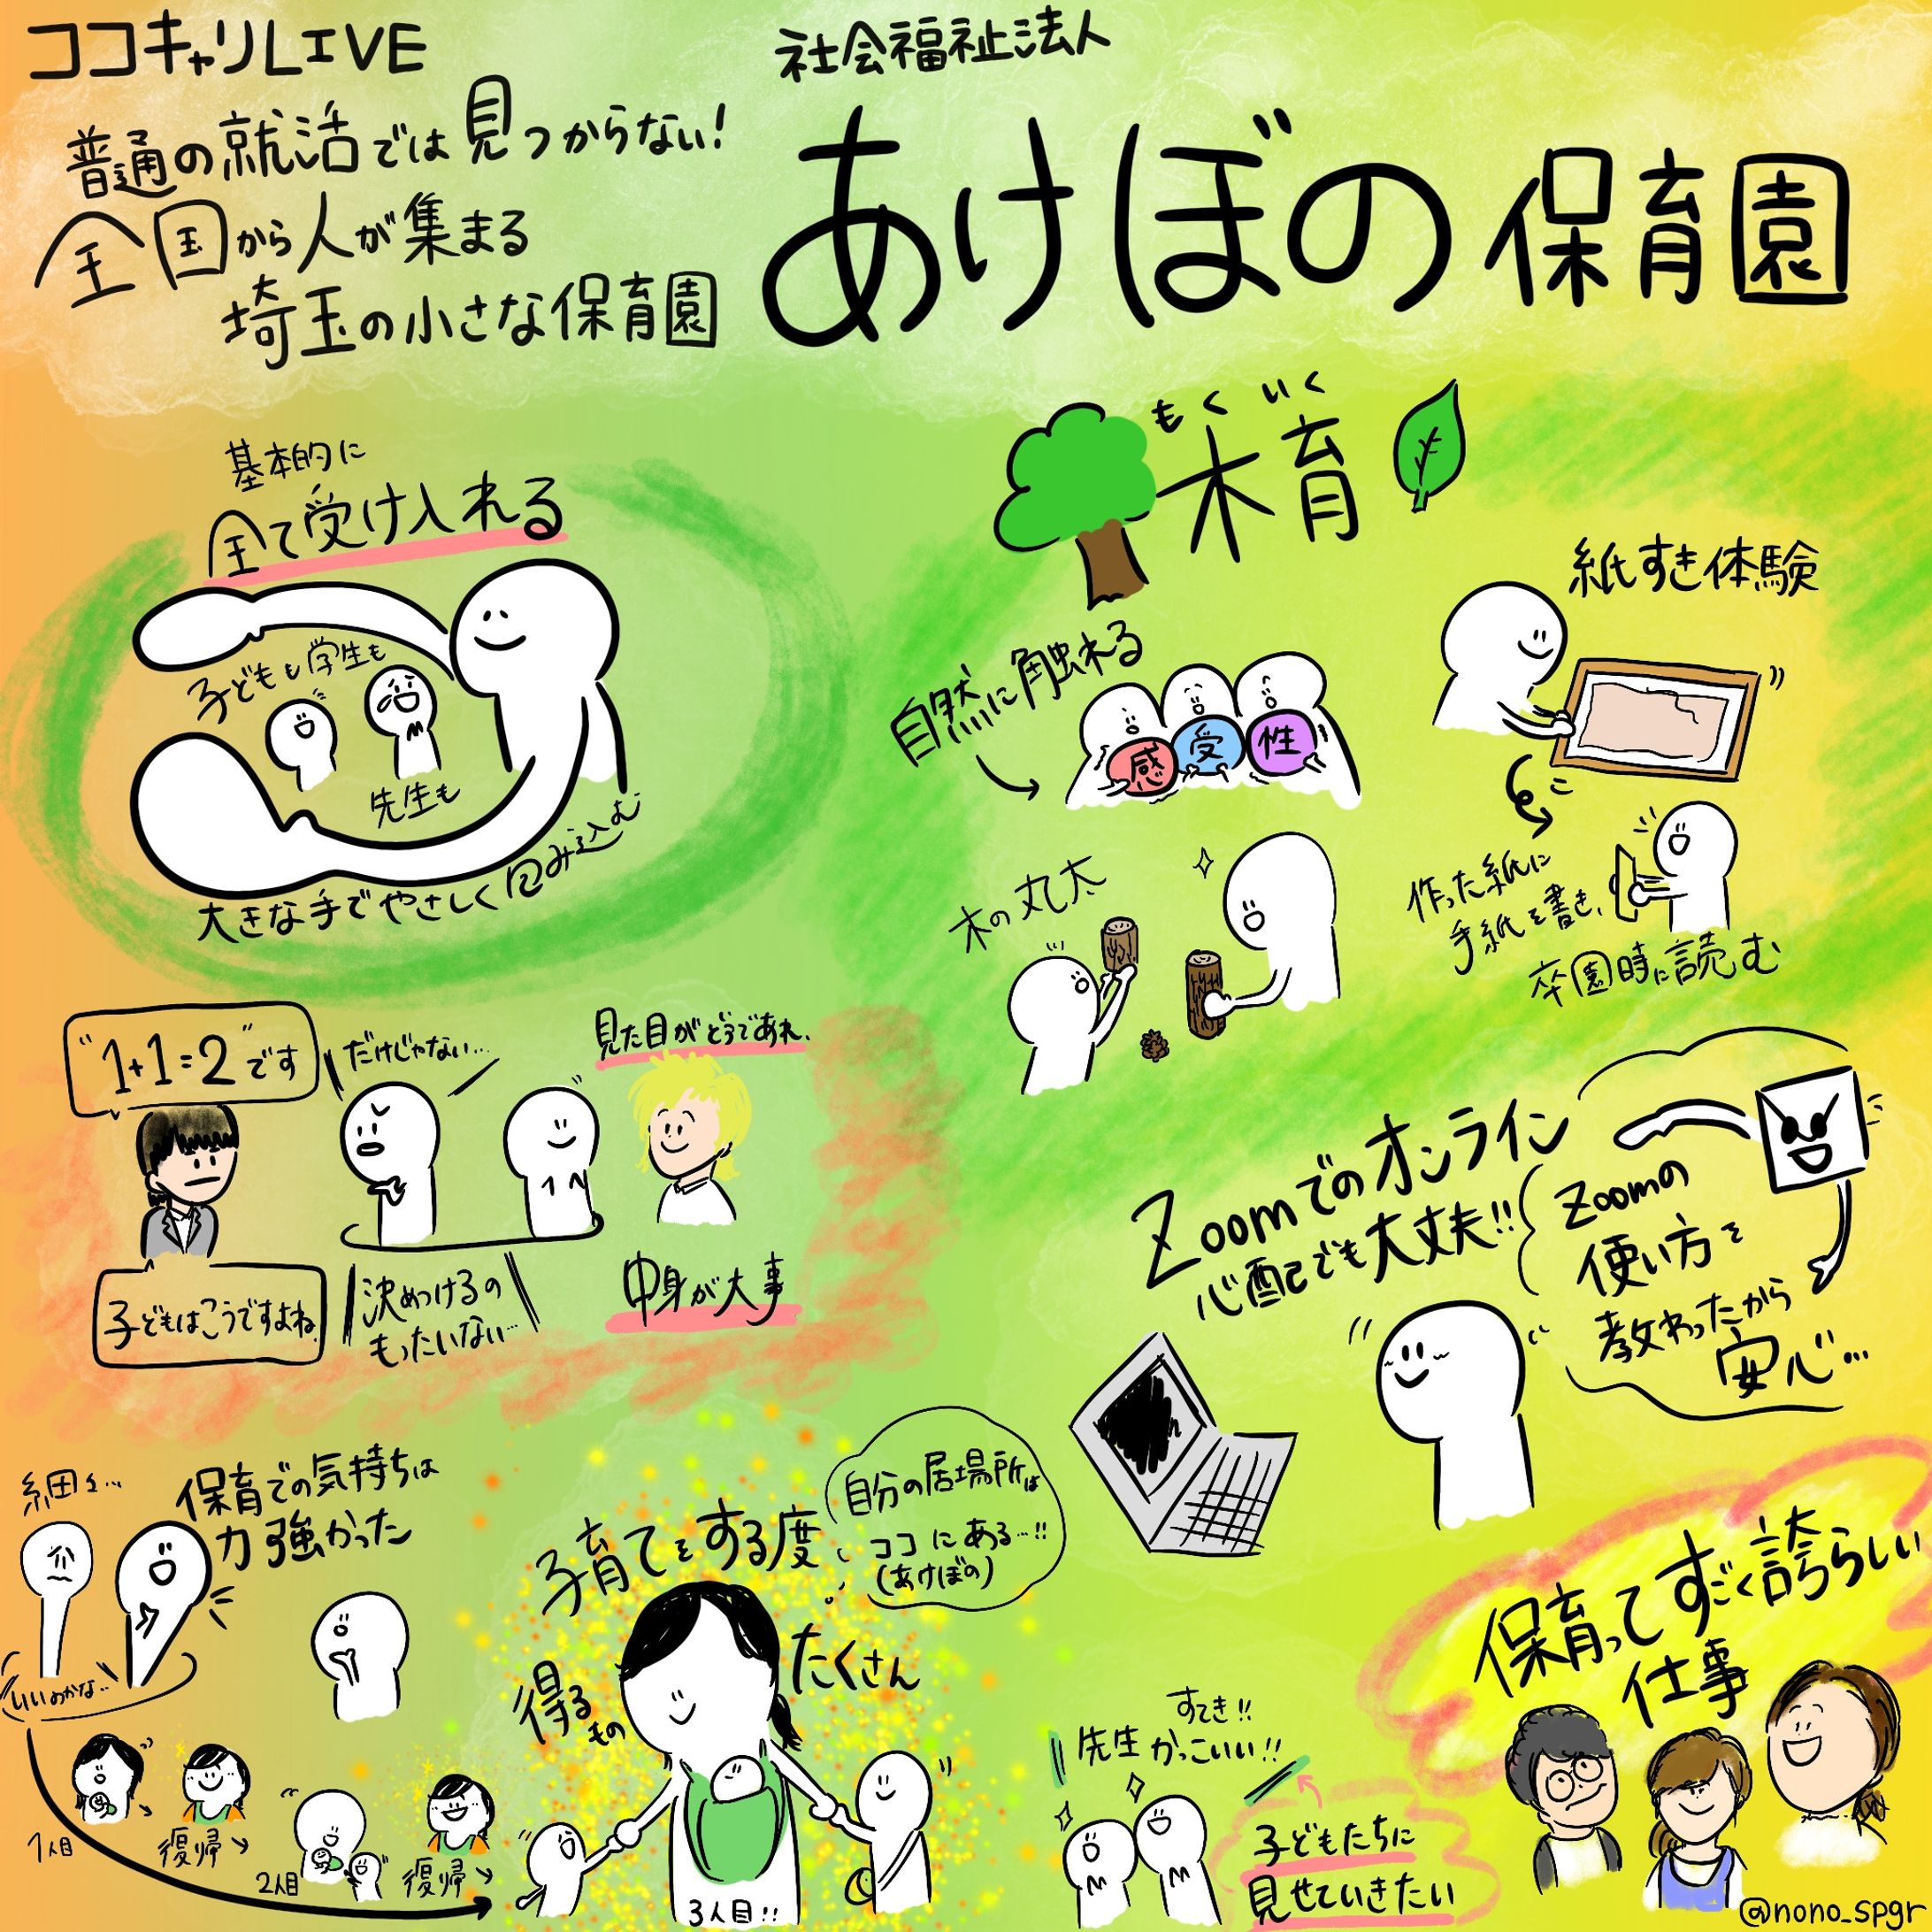 ココキャリLIVE
普通の就活では見つからない!
全国から人が集まる
埼玉の小さな保育園
社会福祉法人
あけぼの保育園
基本的に
全て受け入れる
子どもも学生も
先生も
大きな手でやさしく包み込む
もくいく
木育
自然に触れる
感受性
紙すき体験
作った紙に
手紙を書き、
卒園時に読む
木の丸太
"1+1=2"です
だけじゃない…
子どもはこうですよね。
決めつけるの
もったいない…
見た目がどうであれ、
中身が大事
Zoomでのオンライン
心配でも大丈夫!!
Zoomの
使い方を
教わったから
安心…
細々…
保育での気持ちは
力強かった
いいのかな…
1人目
復帰
2人目
復帰
子育てをする度
得るもの
たくさん
3人目!!
自分の居場所は
ココにある…!!
(あけぼの)
すてき!!
先生かっこいい!!
子どもたちに
見せていきたい
保育ってすごく誇らしい
仕事
@nono_spgr